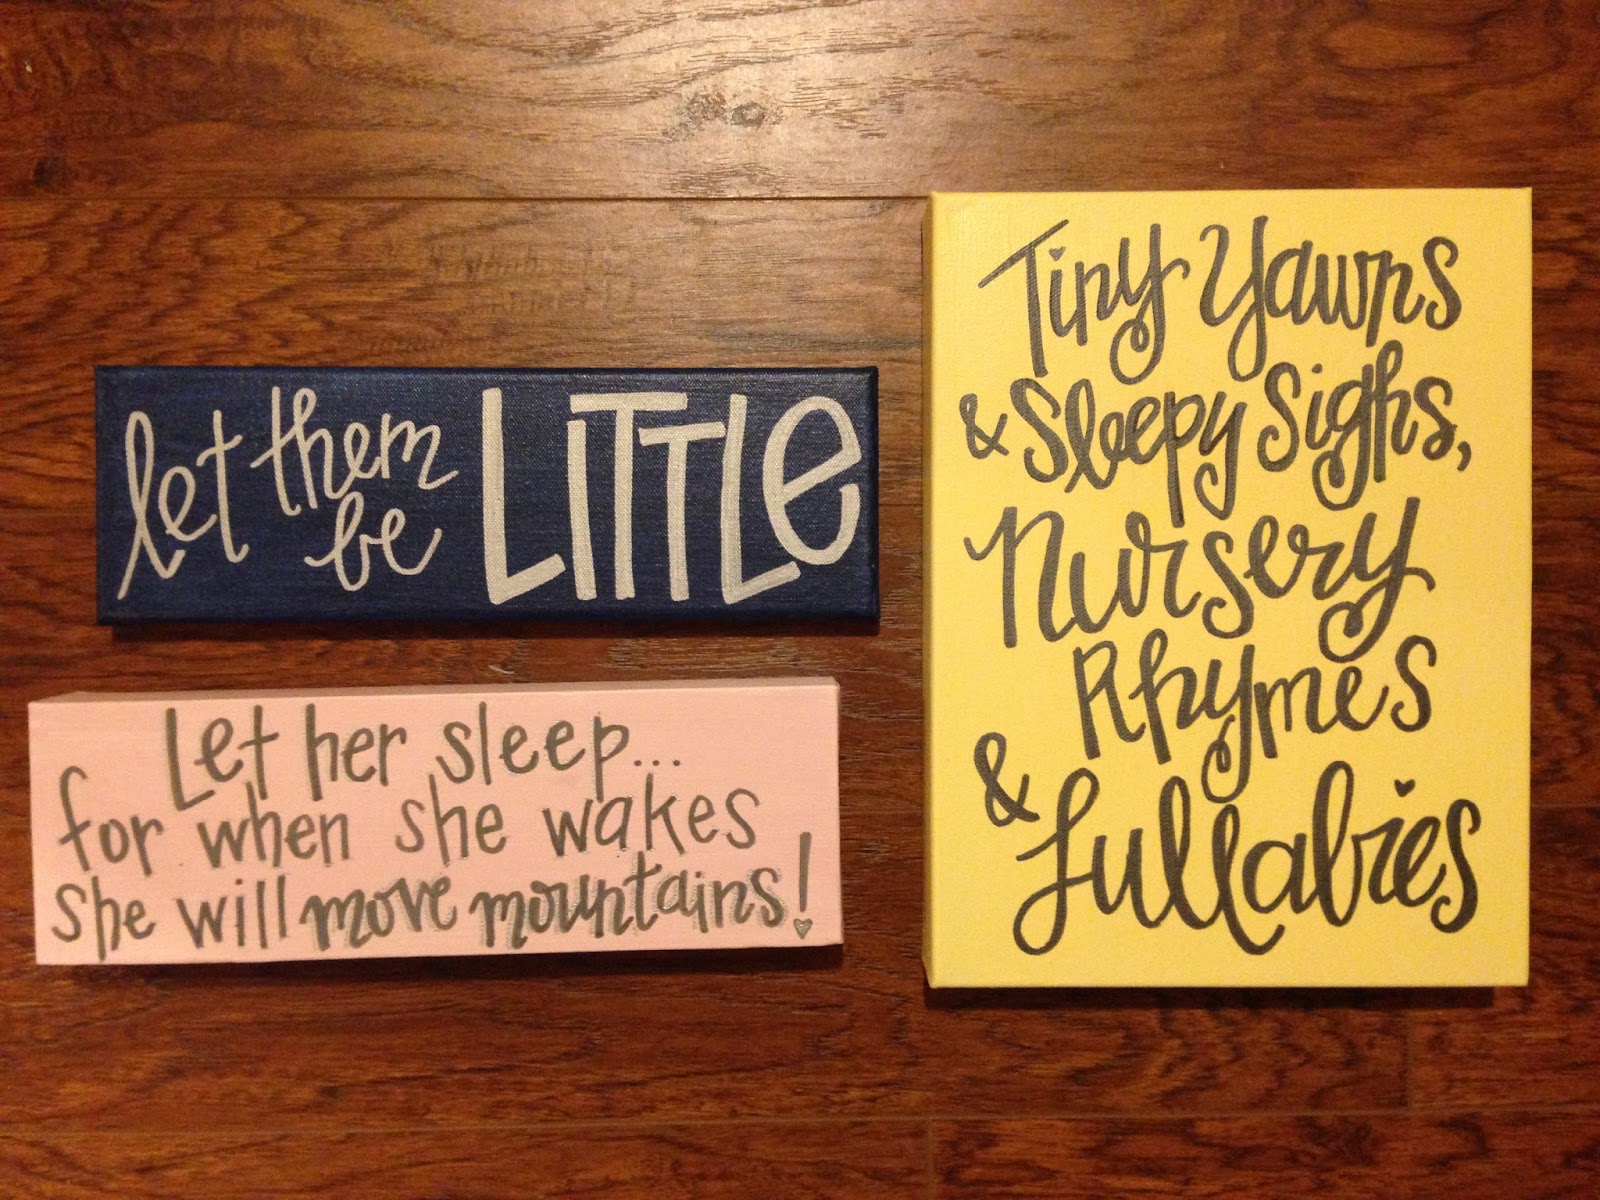 let them
be LITTLe
Let her sleep...
for when she wakes
she will move mountains!
Tiny Yawns
& Sleepy Sighs,
Nursery
Rhymes
& Lullabies